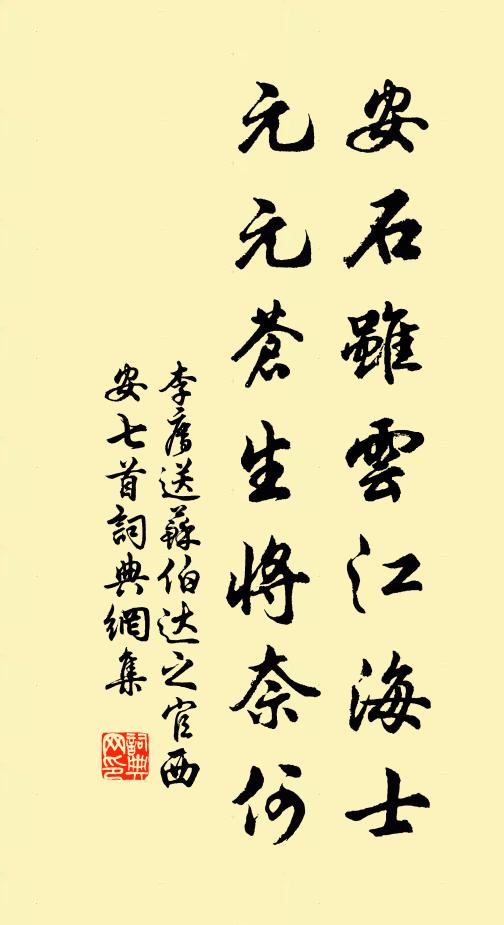 安石雖雲江海士
元元蒼生將奈何
李廌送蘇伯达之官西
安七首詞典網集
詞典
网印